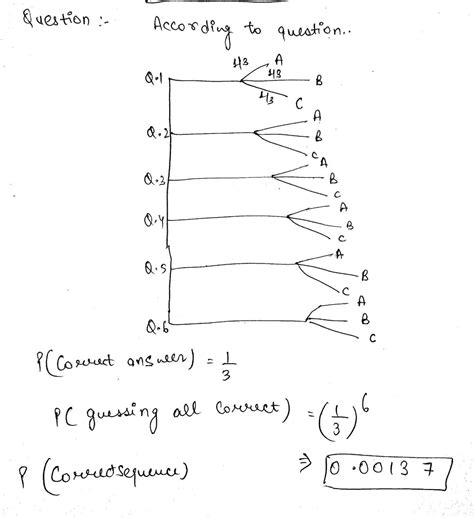 Question :- According to question..
1/3 A
Q.1 1/3 B
1/3 C
A
Q.2 B
C
A
Q.3 B
C
A
Q.4 B
C
A
Q.5 B
C
A
Q.6 B
C
P(Correct answer) = 1/3
P( guessing all correct) = (1/3)^6
P (Correct sequence) ⇒ 0.00137